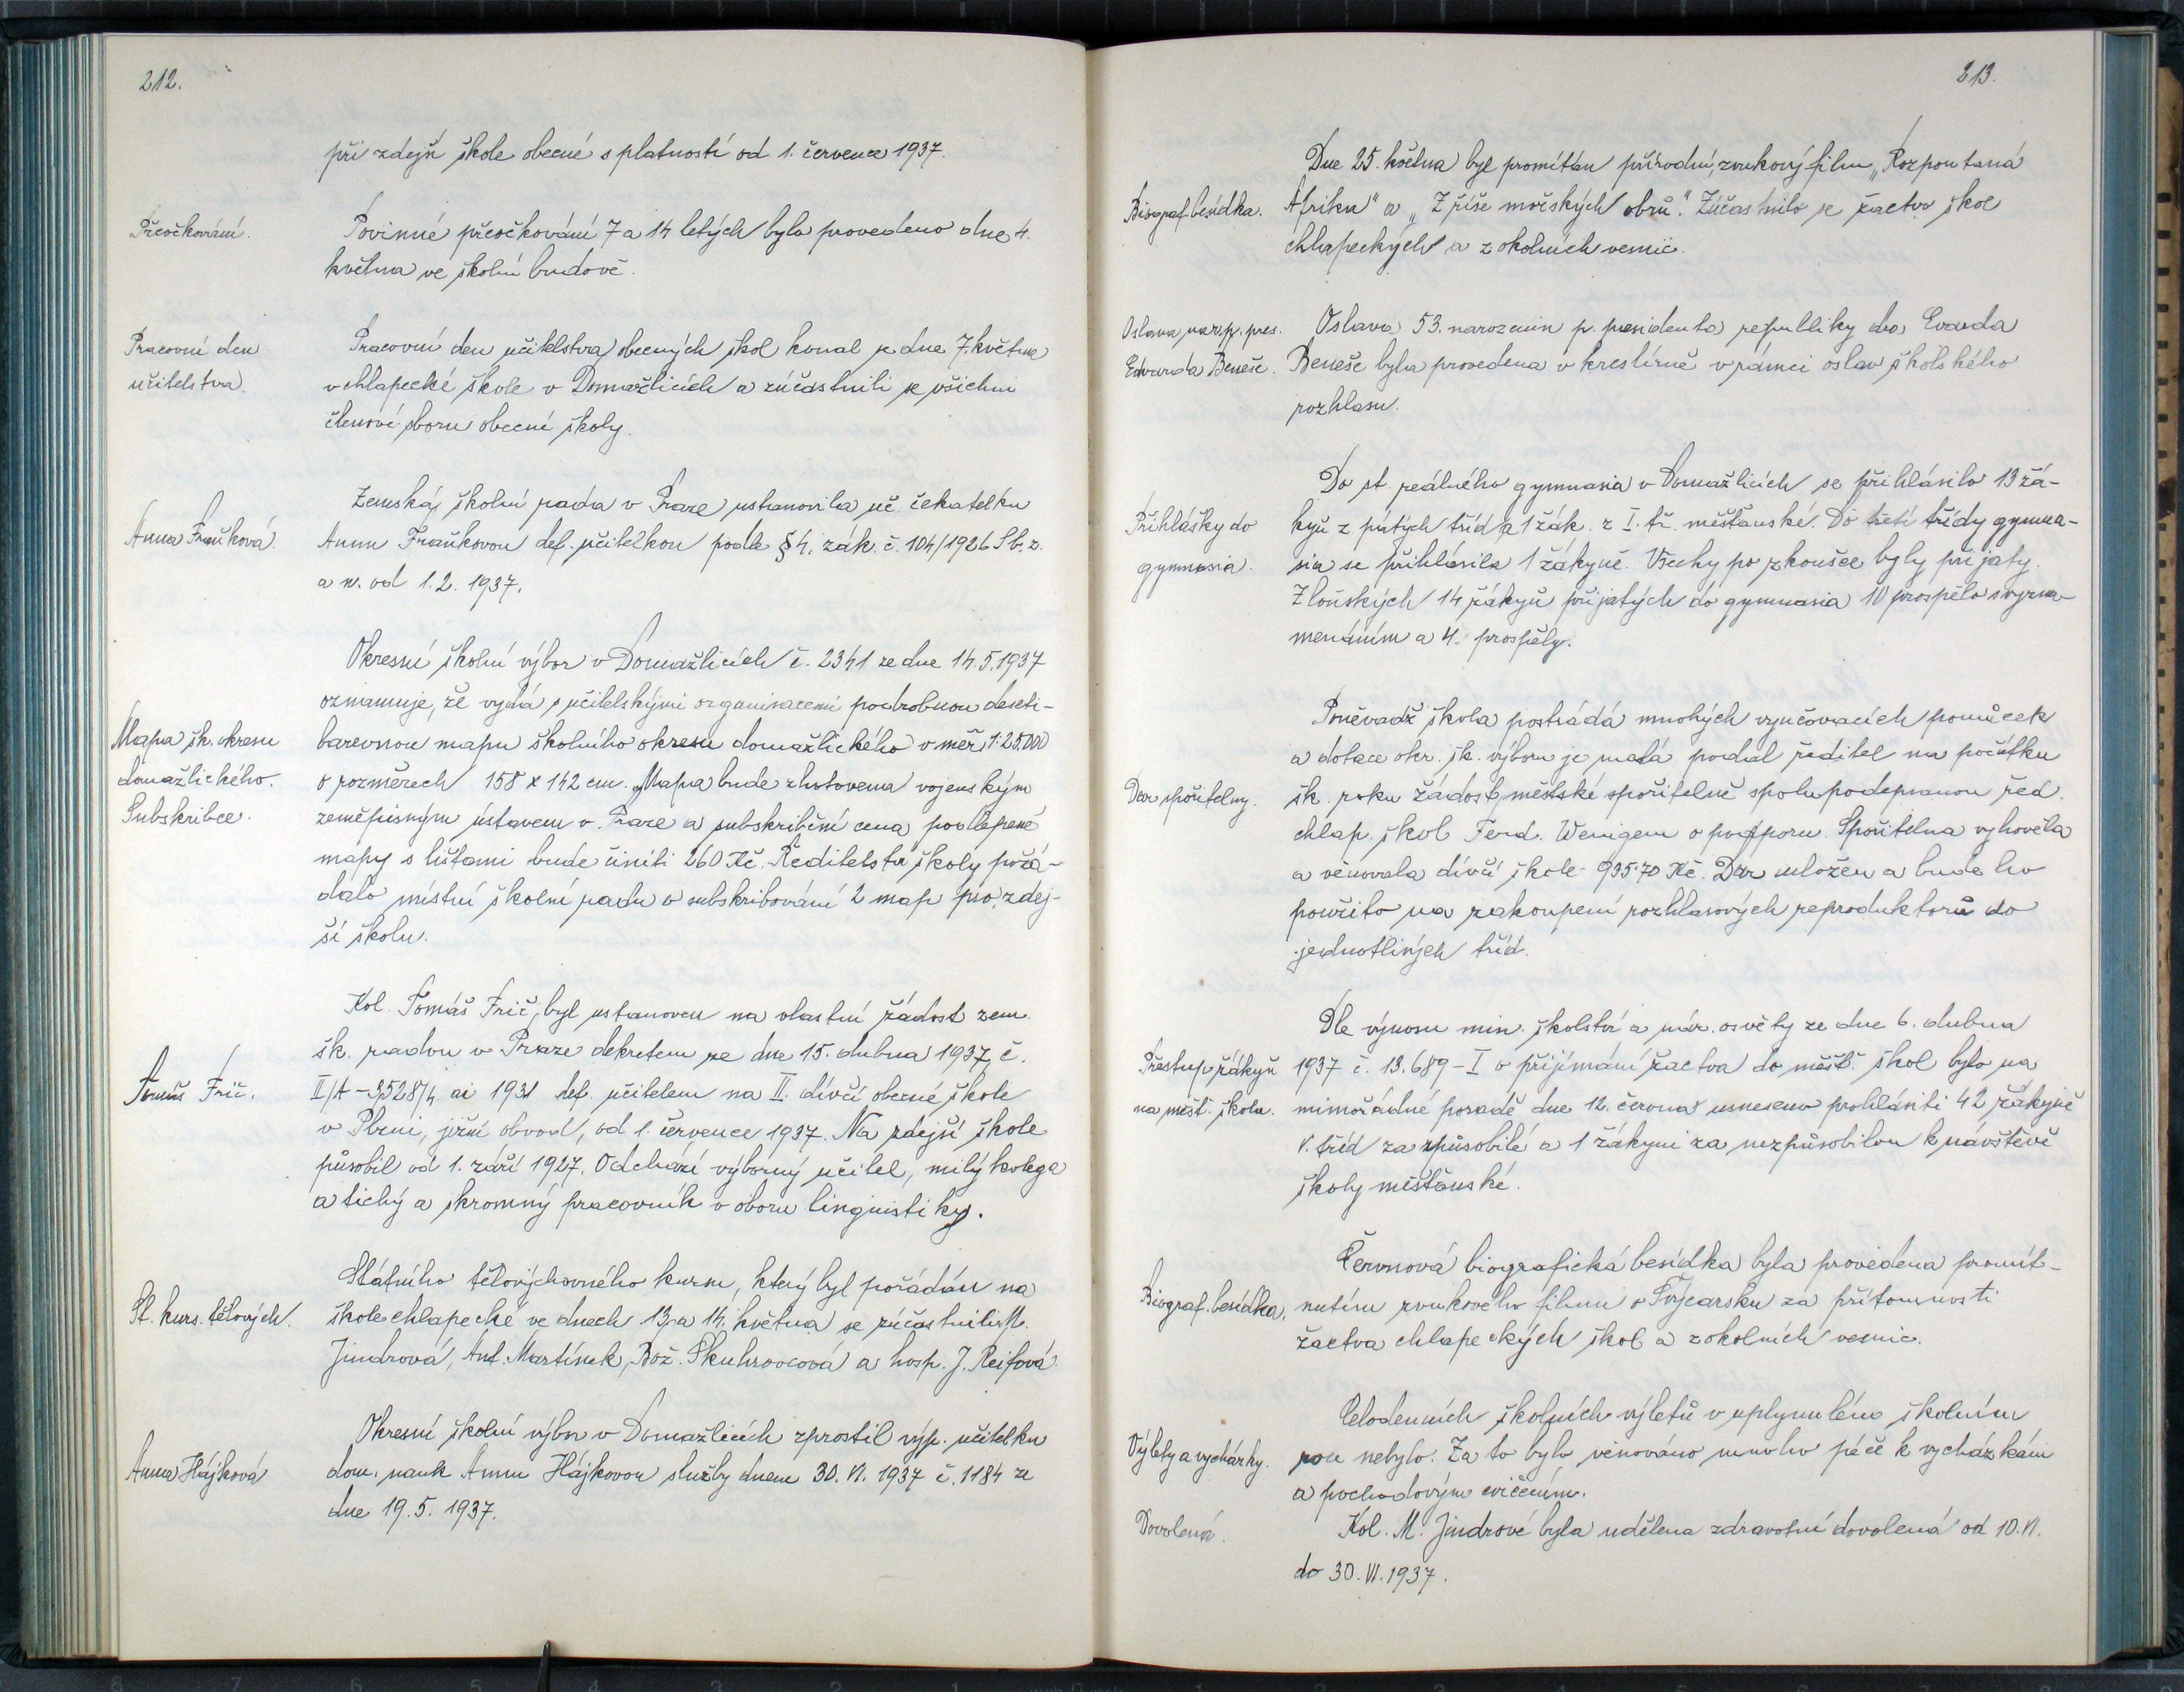 212.
při zdejší škole obecné s platností od 1. července 1937.
Přeočkování.
Povinné přeočkování 7 a 14 letých bylo provedeno dne 4.
května ve školní budově.
Pracovní den
učitelstva.
Pracovní den učitelstva obecných škol konal se dne 7. května
v chlapecké škole v Domažlicích a zúčastnili se všichni
členové sboru obecné školy.
Anna Fraňková.
Zemská školní rada v Praze ustanovila uč. čekatelku
Annu Fraňkovou def. učitelkou podle § 4. zák. č. 104/1926 Sb. z.
a n. od 1. 2. 1937.
Mapa šk. okresu
domažlického.
Subskribce.
Okresní školní výbor v Domažlicích č. 2341 ze dne 14. 5. 1937
oznamuje, že vydá s učitelskými organisacemi podrobnou deseti-
barevnou mapu školního okresu domažlického v měř. 1:25.000
o rozměrech 158 x 142 cm. Mapa bude zhotovena vojenským
zeměpisným ústavem v Praze a subskribční cena podlepené
mapy s lištami bude činiti 260 Kč. Ředitelství školy požá-
dalo místní školní radu o subskribování 2 map pro zdej-
ší školu.
Tomáš Frič.
Kol. Tomáš Frič, byl ustanoven na vlastní žádost zem.
šk. radou v Praze dekretem ze dne 15. dubna 1937, č.
II/A - 3528/4 ai 1931 def. učitelem na II. dívčí obecné škole
v Plzni, jižní obvod, od 1. července 1937. Na zdejší škole
působil od 1. září 1927. Odchází výborný učitel, milý kolega
a tichý a skromný pracovník v oboru linguistiky.
St. kurs tělových.
Státního tělovýchovného kursu, který byl pořádán na
škole chlapecké ve dnech 13. a 14. května se zúčastnili M.
Jindrová, Ant. Martínek, Bož. Skuhrovcová a hosp. J. Reifová.
Anna Hájková
Okresní školní výbor v Domažlicích zprostil výp. učitelku
dom. nauk Annu Hájkovou služby dnem 30. VI. 1937 č. 1184 ze
dne 19. 5. 1937.
213.
Biograf. besídka.
Dne 25. května byl promítán přírodní, zvukový film „Rozpoutaná
Afrika" a „Z říše mořských obrů." Zúčastnilo se žactvo škol
chlapeckých a z okolních vesnic.
Oslava naroz. p. pres.
Edvarda Beneše.
Oslava 53. narozenin p. presidenta republiky dra Evarda
Beneše byla provedena v kreslírně v rámci oslav školského
rozhlasu.
Přihlášky do
gymnasia.
Do st. reálného gymnasia v Domažlicích se přihlásilo 13 žá-
kyň z pátých tříd a 1 žák. z I. tř. měšťanské. Do třetí třídy gymna-
sia se přihlásila 1 žákyně. Všechy po zkoušce byly přijaty.
Z loňských 14 žákyň přijatých do gymnasia 10 prospělo s vyzna-
menáním a 4 prospěly.
Dar spořitelny.
Poněvadž škola postrádá mnohých vyučovacích pomůcek
a dotace okr. šk. výboru je malá podal ředitel na počátku
šk. roku žádost městské spořitelně spolupodepsanou řed.
chlap. škol Ferd. Wenigem o podporu. Spořitelna vyhověla
a věnovala dívčí škole 935·70 Kč. Dar uložen a bude ho
použito na zakoupení rozhlasových reproduktorů do
jednotlivých tříd.
Přestup žákyň
na měšť. školu.
Dle výnosu min. školství a nár. osvěty ze dne 6. dubna
1937 č. 13.689 - I o přijímání žactva do měšť. škol bylo na
mimořádné poradě dne 12. června usneseno prohlásiti 42 žákyně
V. tříd za způsobilé a 1 žákyni za nezpůsobilou k návštěvě
školy měšťanské.
Biograf. besídka.
Červnová biografická besídka byla provedena promít-
nutím zvukového filmu o Švýcarsku za přítomnosti
žactva chlapeckých škol a z okolních vesnic.
Výlety a vycházky.
Celodenních školních výletů v uplynulém školním
roce nebylo. Za to bylo věnováno mnoho péče k vycházkám
a pochodovým cvičením.
Dovolená.
Kol. M. Jindrové byla udělena zdravotní dovolená od 10. VI.
do 30. VI. 1937.